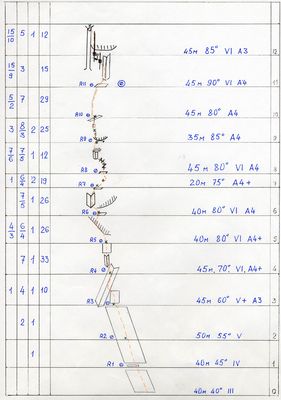 15/10 5 1 12 45м 85° VI A3 12
15/9 3 15 R11 45м 90° VI A4 11
5/2 7 29 R10 45м 80° A4
3 8/3 2 25 R9 35м 85° A4
1 12 R8 45м 80° VI A4
1 6/4 2 19 R7 20м 75° A4+ 7
1 26 R6 40м 80° VI A4 6
4/3 6/4 1 26 R5 40м 80° VI A4+ 5
7 1 33 R4 45м, 70° VI, A4+ 4
1 4 1 10 R3 45м 60° V+ A3 3
2 1 R2 50м 55° V 2
1 R1 40м 45° IV 1
40м 40° III 0